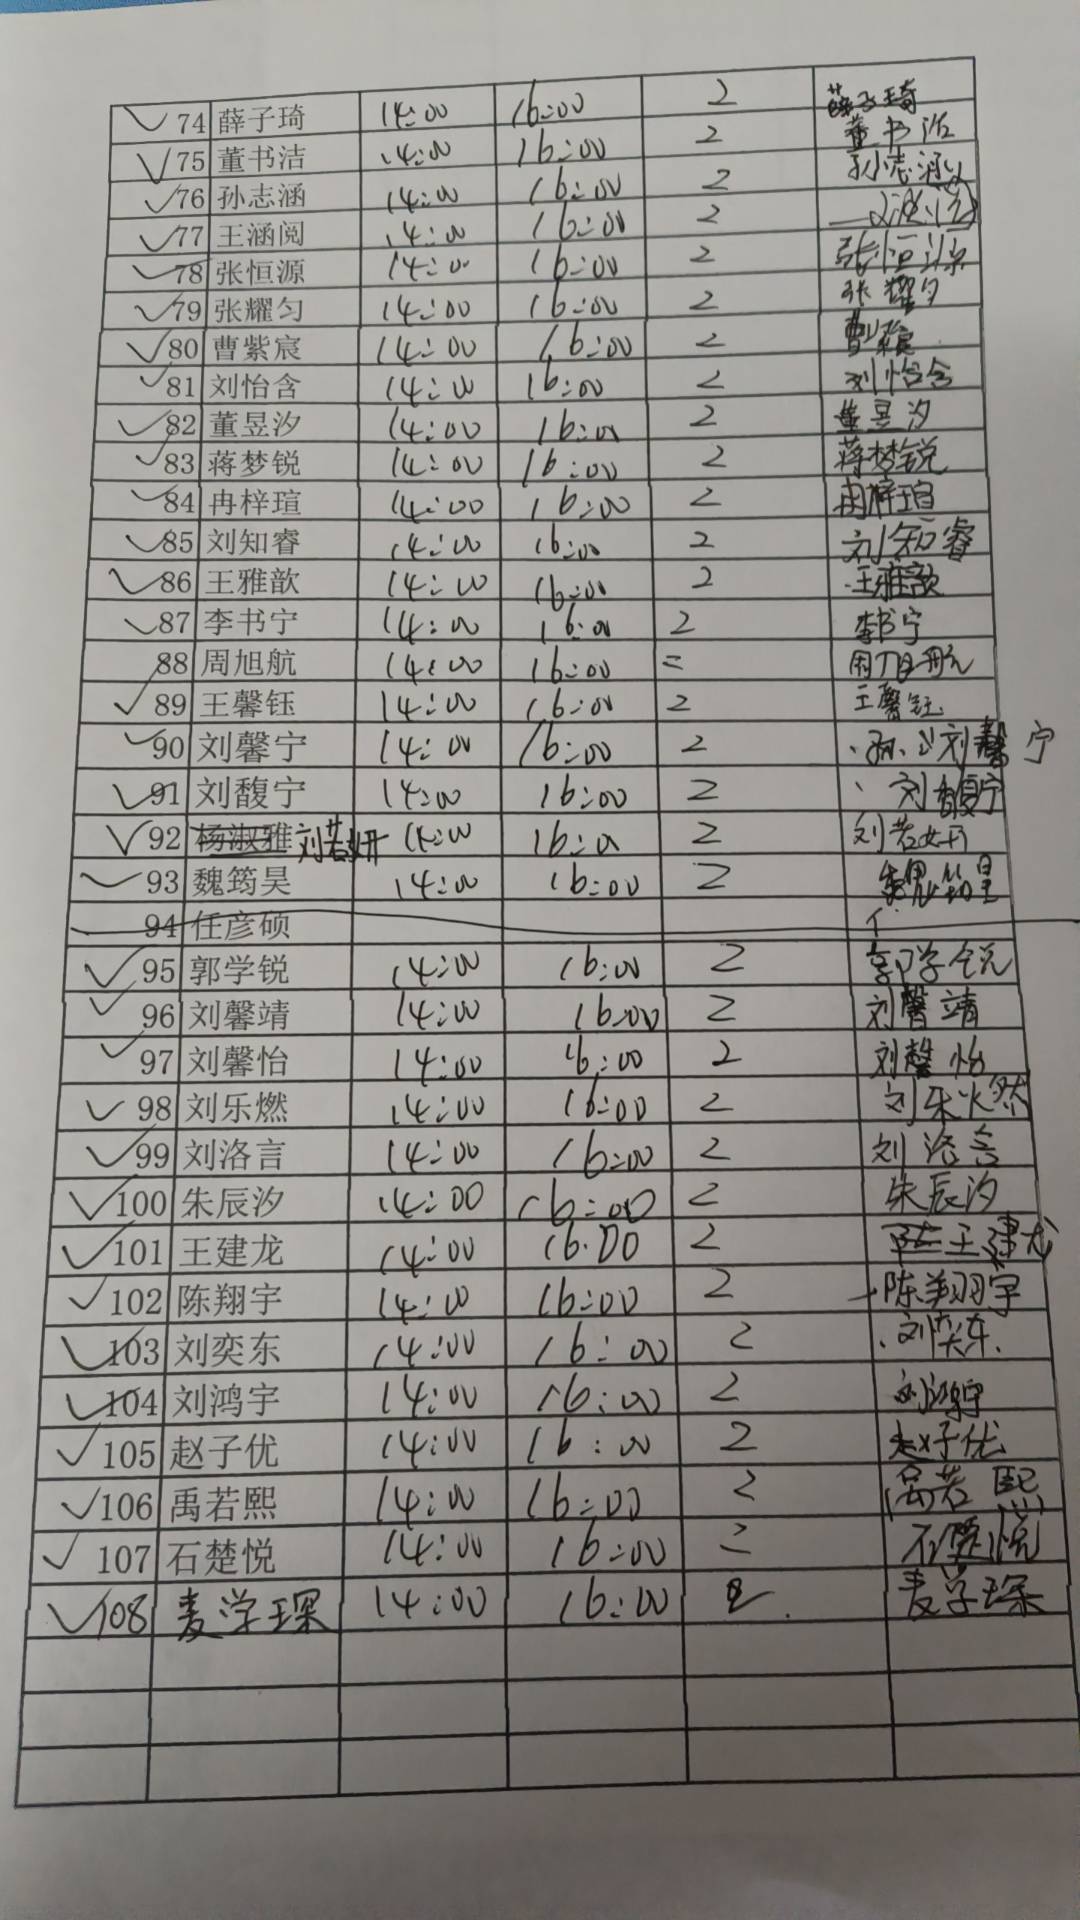 74 薛子琦 14:00 16:00 2 薛子琦
75 董书洁 14:00 16:00 2 董书洁
76 孙志涵 14:00 16:00 2 孙志涵
77 王涵阅 14:00 16:00 2
78 张恒源 14:00 16:00 2 张恒源
79 张耀匀 14:00 16:00 2 张耀匀
80 曹紫宸 14:00 16:00 2 曹紫宸
81 刘怡含 14:00 16:00 2 刘怡含
82 董昱汐 14:00 16:00 2 董昱汐
83 蒋梦锐 14:00 16:00 2 蒋梦锐
84 冉梓瑄 14:00 16:00 2 冉梓瑄
85 刘知睿 14:00 16:00 2 刘知睿
86 王雅歆 14:00 16:00 2 王雅歆
87 李书宁 14:00 16:00 2 李书宁
88 周旭航 14:00 16:00 = 周旭航
89 王馨钰 14:00 16:00 2 王馨钰
90 刘馨宁 14:00 16:00 2 刘馨宁
91 刘馥宁 14:00 16:00 2 刘馥宁
92 杨淑雅 刘若妍 14:00 16:00 2 刘若妍
93 魏筠昊 14:00 16:00 2 魏筠昊
94 任彦硕
95 郭学锐 14:00 16:00 2 郭学锐
96 刘馨靖 14:00 16:00 2 刘馨靖
97 刘馨怡 14:00 16:00 2 刘馨怡
98 刘乐燃 14:00 16:00 2 刘乐燃
99 刘洛言 14:00 16:00 2 刘洛言
100 朱辰汐 14:00 16:00 2 朱辰汐
101 王建龙 14:00 16:00 2 王建龙
102 陈翔宇 14:00 16:00 2 陈翔宇
103 刘奕东 14:00 16:00 2 刘奕东
104 刘鸿宇 14:00 16:00 2 刘鸿宇
105 赵子优 14:00 16:00 2 赵子优
106 禹若熙 14:00 16:00 2 禹若熙
107 石楚悦 14:00 16:00 2 石楚悦
108 麦学琛 14:00 16:00 2 麦学琛